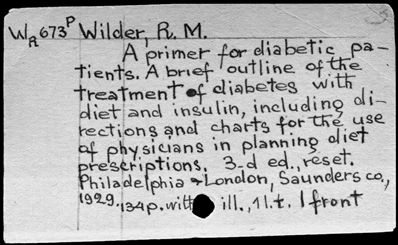 WR673P Wilder, R. M.
A primer for diabetic pa-
tients. A brief outline of the
treatment of diabetes with
diet and insulin, including di-
rections and charts for the use
of physicians in planning diet
prescriptions. 3-d ed., reset.
Philadelphia & London, Saunders co.,
1929. 134p. with ill., 1 l. t. 1 front